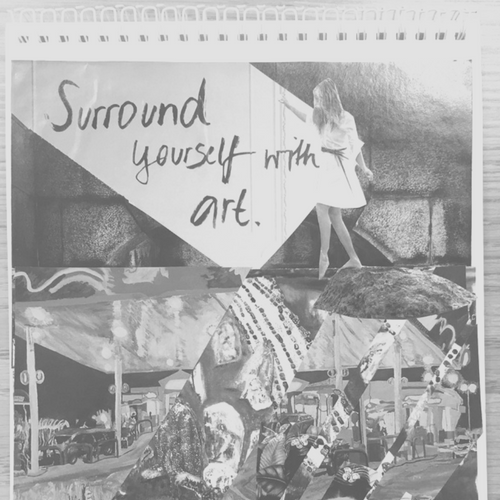 Surround
yourself with
art.